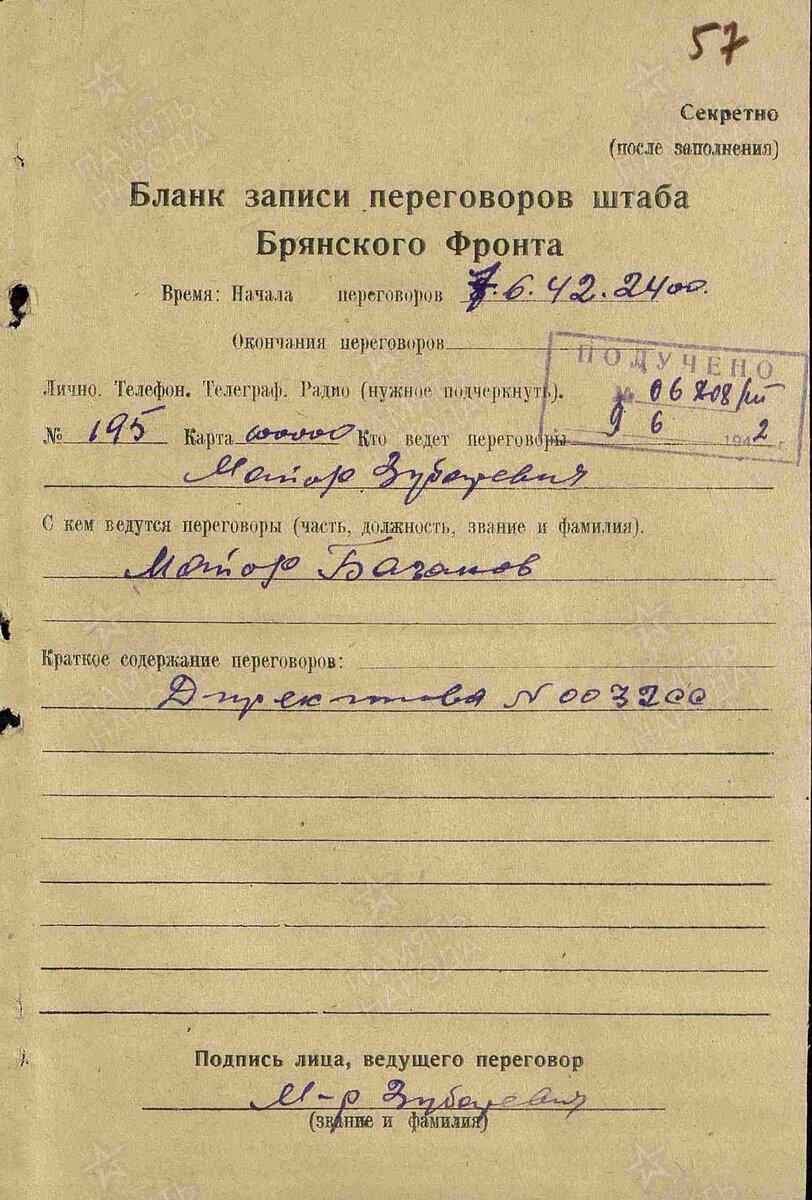 57
Секретно
(после заполнения)
Бланк записи переговоров штаба
Брянского Фронта
Время: Начала переговоров 7.6.42. 24 00.
Окончания переговоров
ПОЛУЧЕНО
Лично. Телефон. Телеграф. Радио (нужное подчеркнуть).
№ 06708/ш
9 6 1942 г.
№ 195 Карта 100000 Кто ведет переговоры
Майор
С кем ведутся переговоры (часть, должность, звание и фамилия).
Майор Базанов
Краткое содержание переговоров:
Директива N 003200
Подпись лица, ведущего переговор
М-р
(звание и фамилия)
ПАМЯТЬ
НАРОДА